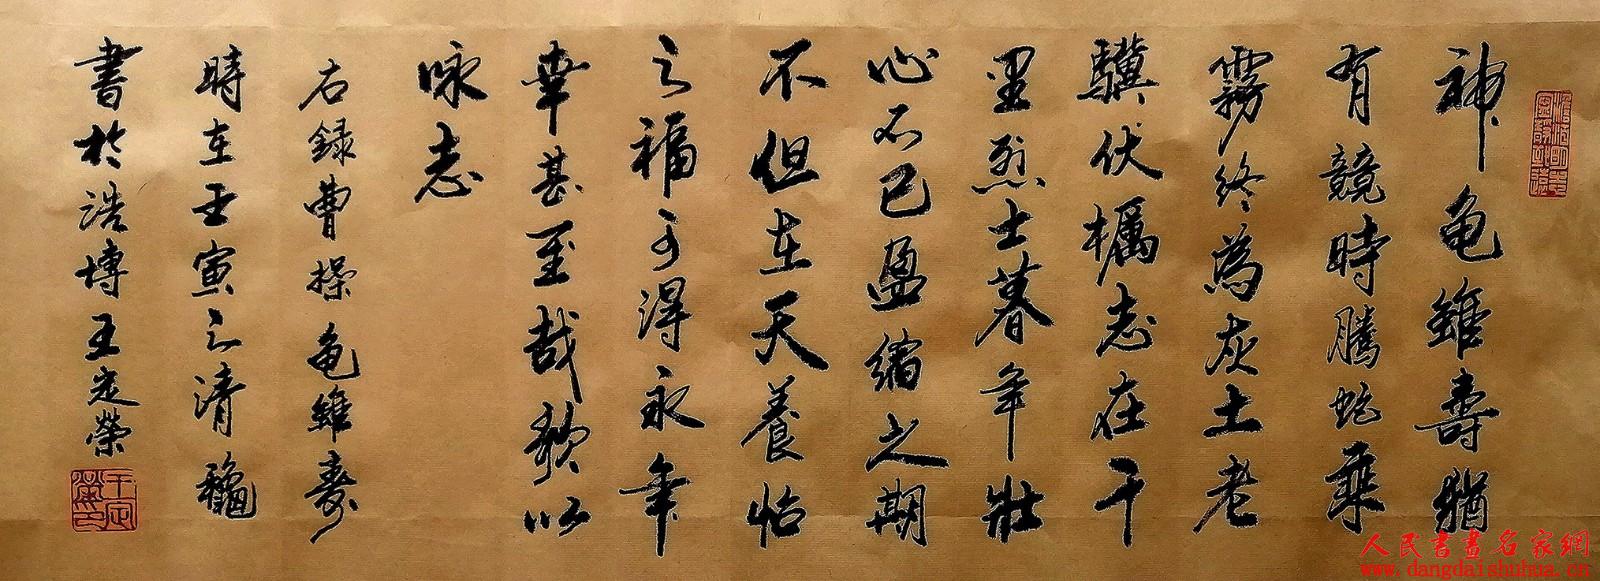 神龜雖壽猶
有競時騰蛇乘
霧終為灰土老
驥伏櫪志在千
里烈士暮年壯
心不已盈縮之期
不但在天養怡
之福可得永年
幸甚至哉歌以
咏志
右録曹操龜雖壽
時在壬寅之清龝
書於浩博王定榮
人民書畫名家網
www.dangdaishuhua.cn